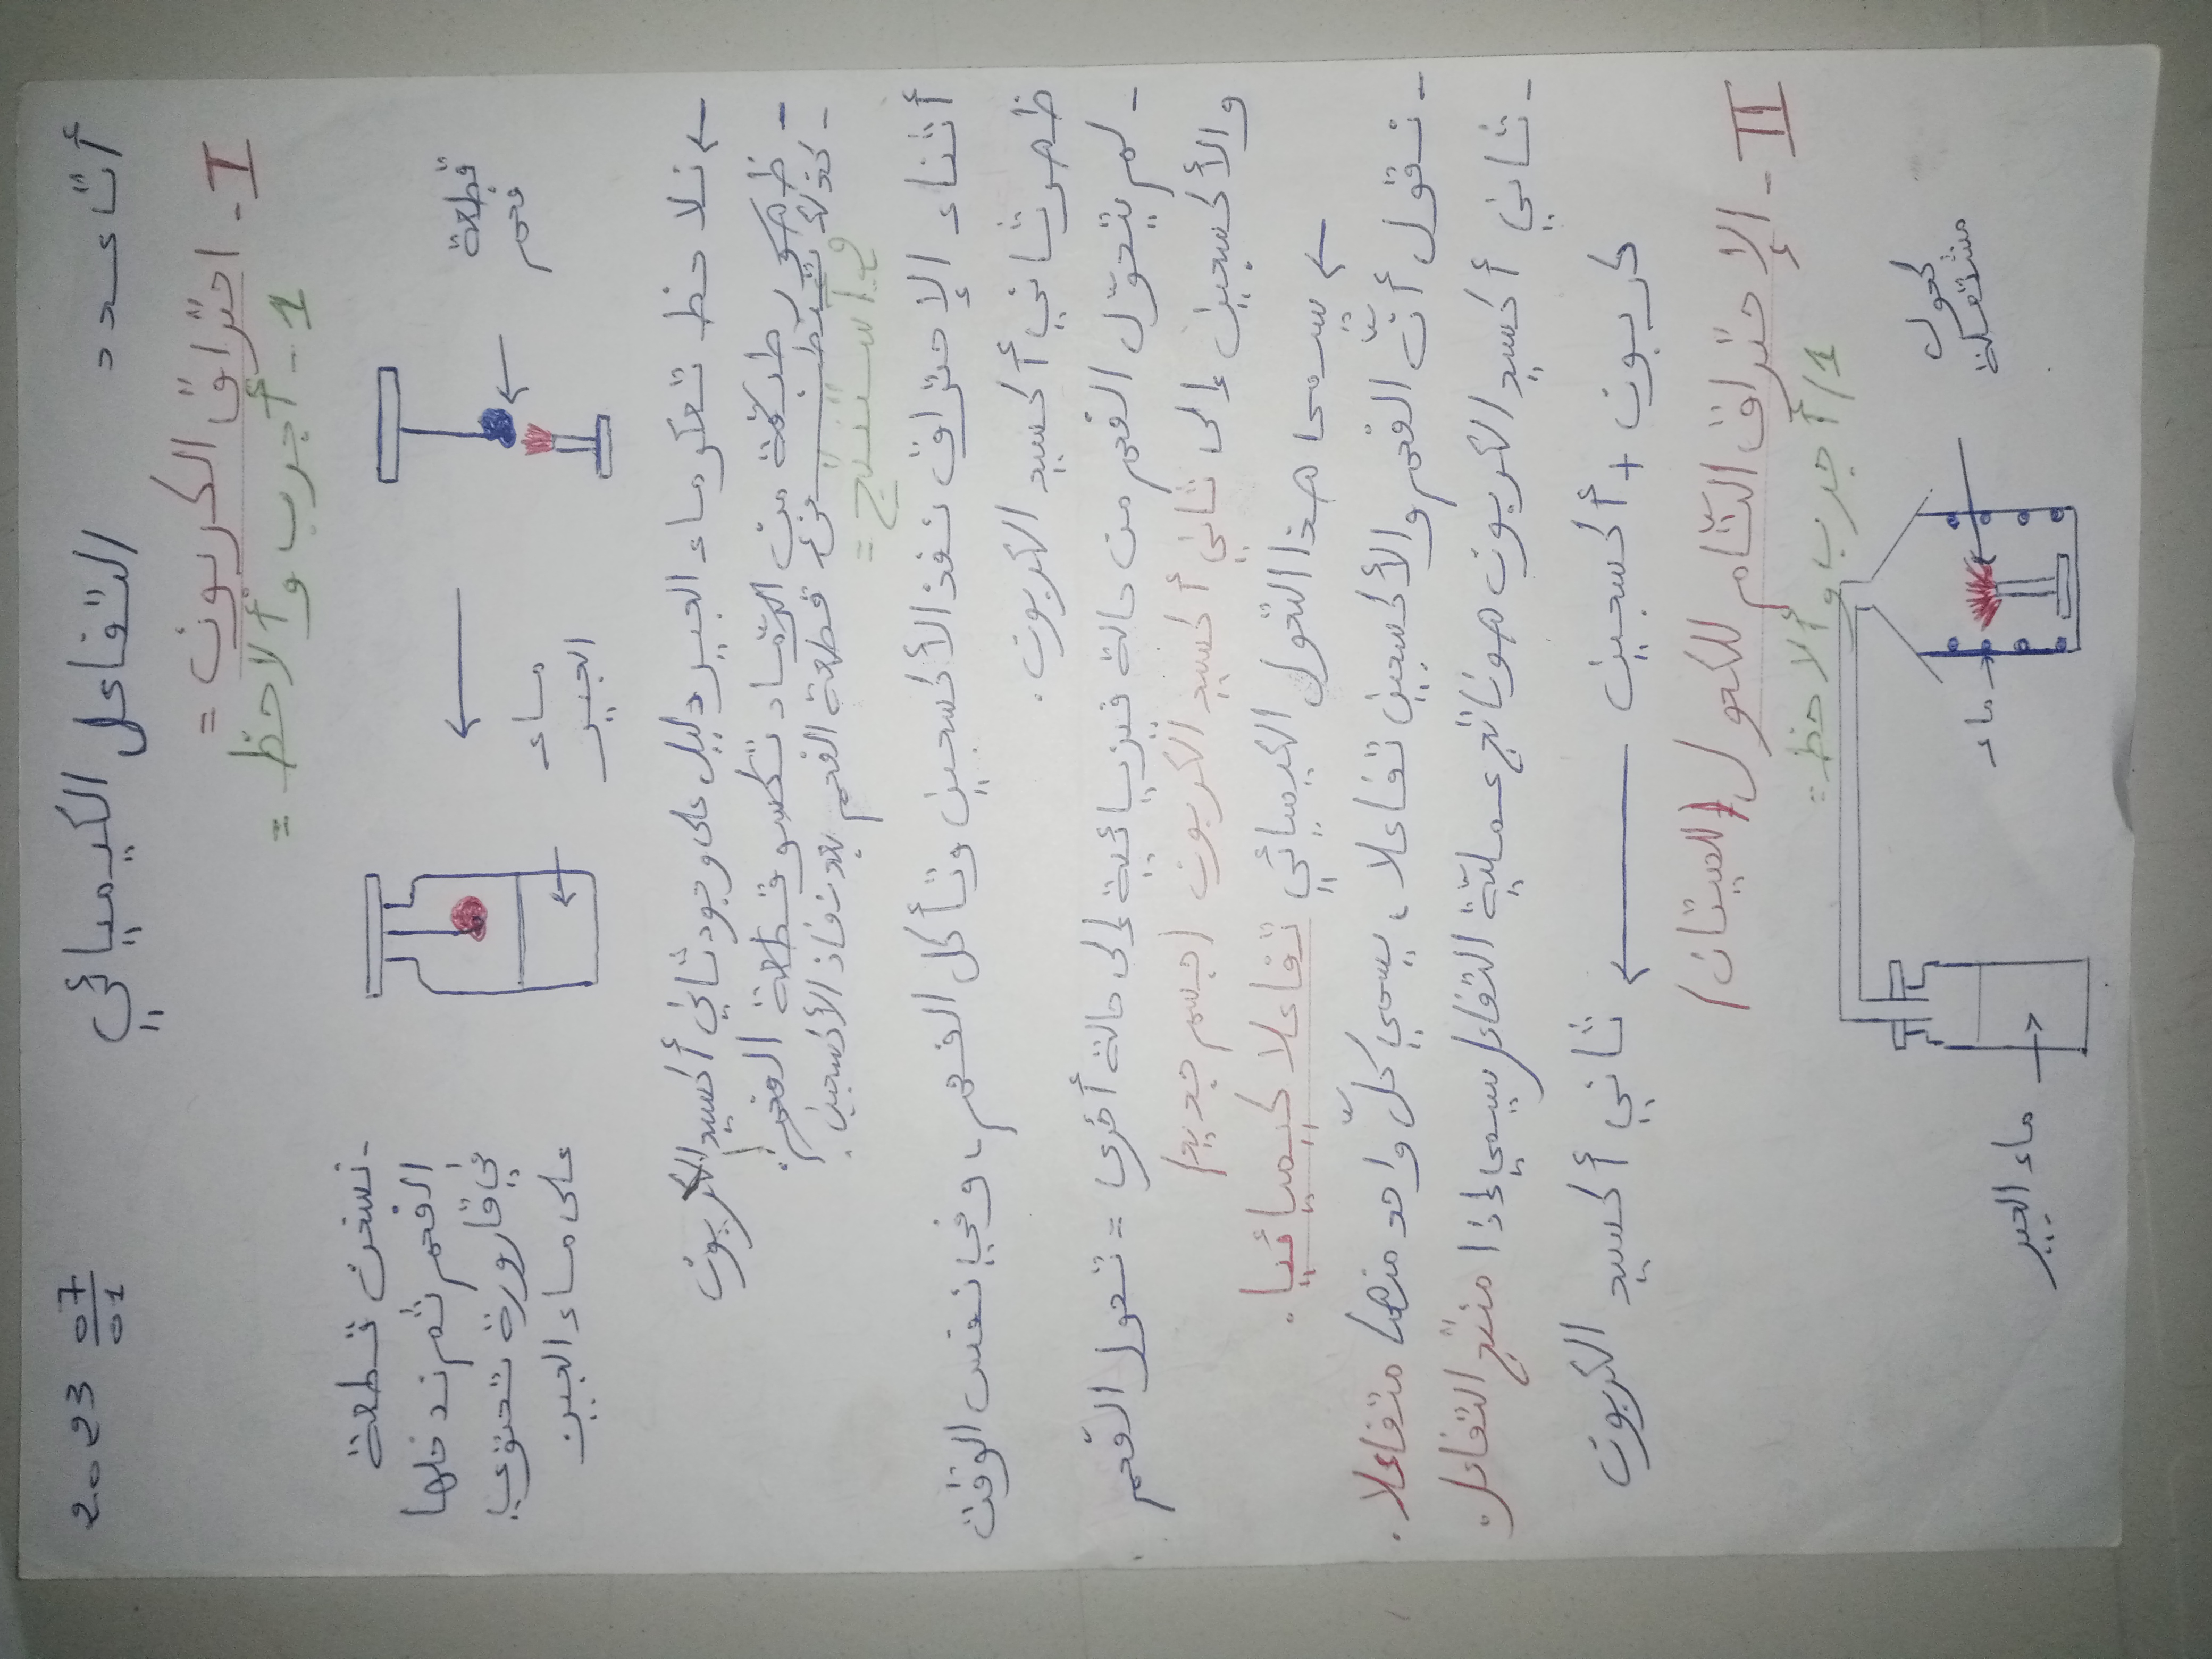 الأحد
التفاعل الكيميائي
2023 07/01
I - احتراق الكربون =
1 - أجرب وألاحظ =
قطعة
فحم
ماء
الجير
- نسخن قطعة
الفحم ثم ندخلها
في قارورة تحتوي
على ماء الجير
← نلاحظ تعكر ماء الجير دليل على وجود ثاني أكسيد الكربون
- ظهور طبقة من الرماد تكسو قطعة الفحم
- كذلك تنطفئ قطعة الفحم بعد نفاذ الأكسجين.
وأستنتج =
أثناء الإحتراق نفذ الأكسجين وتأكل الفحم، وفي نفس الوقت
ظهر ثاني أكسيد الكربون.
- لم يتحوّل الفحم من حالة فيزيائية إلى حالة أخرى = تحول الفحم
والأكسجين إلى ثاني أكسيد الكربون (جسم جديد)
← يسمى هذا التحول الكيميائي تفاعلا كيميائيا.
- نقول أنّ الفحم والأكسجين تفاعلا، يسمى كلّ واحد منهما متفاعلا.
- ثاني أكسيد الكربون هو ناتج عمليّة التفاعل يسمى إذا منتج التفاعل.
كربون + أكسجين ← ثاني أكسيد الكربون
II - الإحتراق التّام للكحول (الميتان)
1/ أجرب وألاحظ =
كحول
مشتعلة
ماء
ماء الجير